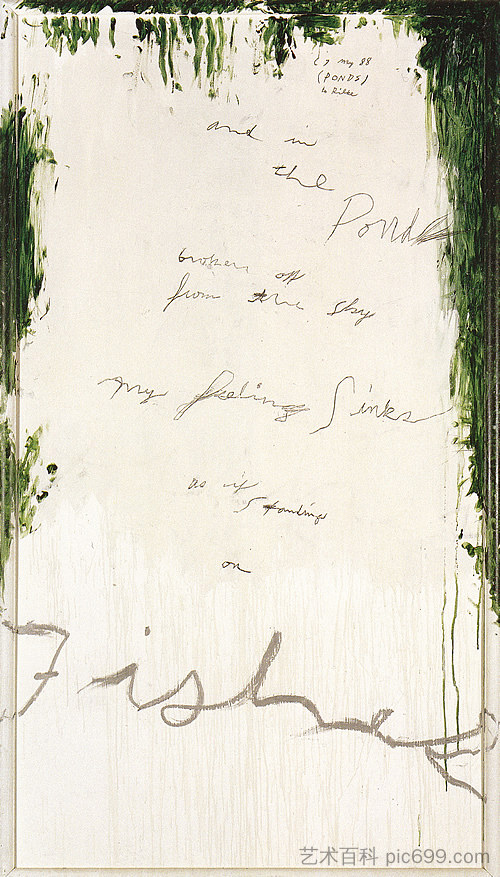 my 88
(PONDS)
to Rilke
and in
the
Ponds
broken off
from the sky
my feeling Sinks
as if
Standing
on
Fishes
艺术百科 pic699.com